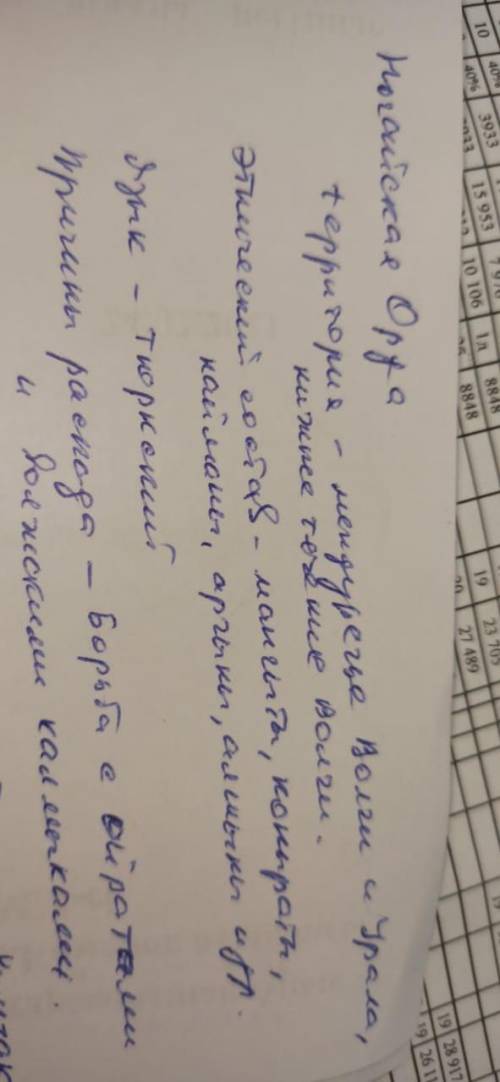 Ногайская Орда
территория - междуречье Волги и Урала,
нижнее течение Волги.
Этнический состав - мангыты, коныраты,
найманы, аргыны, алшыны и др.
Язык - тюркский
Причины распада - Борьба с ойратами
и Волжскими калмыками.
10 40%
40% 3933 15 953
10 106 1л 8848
8848
19 23 703
27 489
19 28 917
19